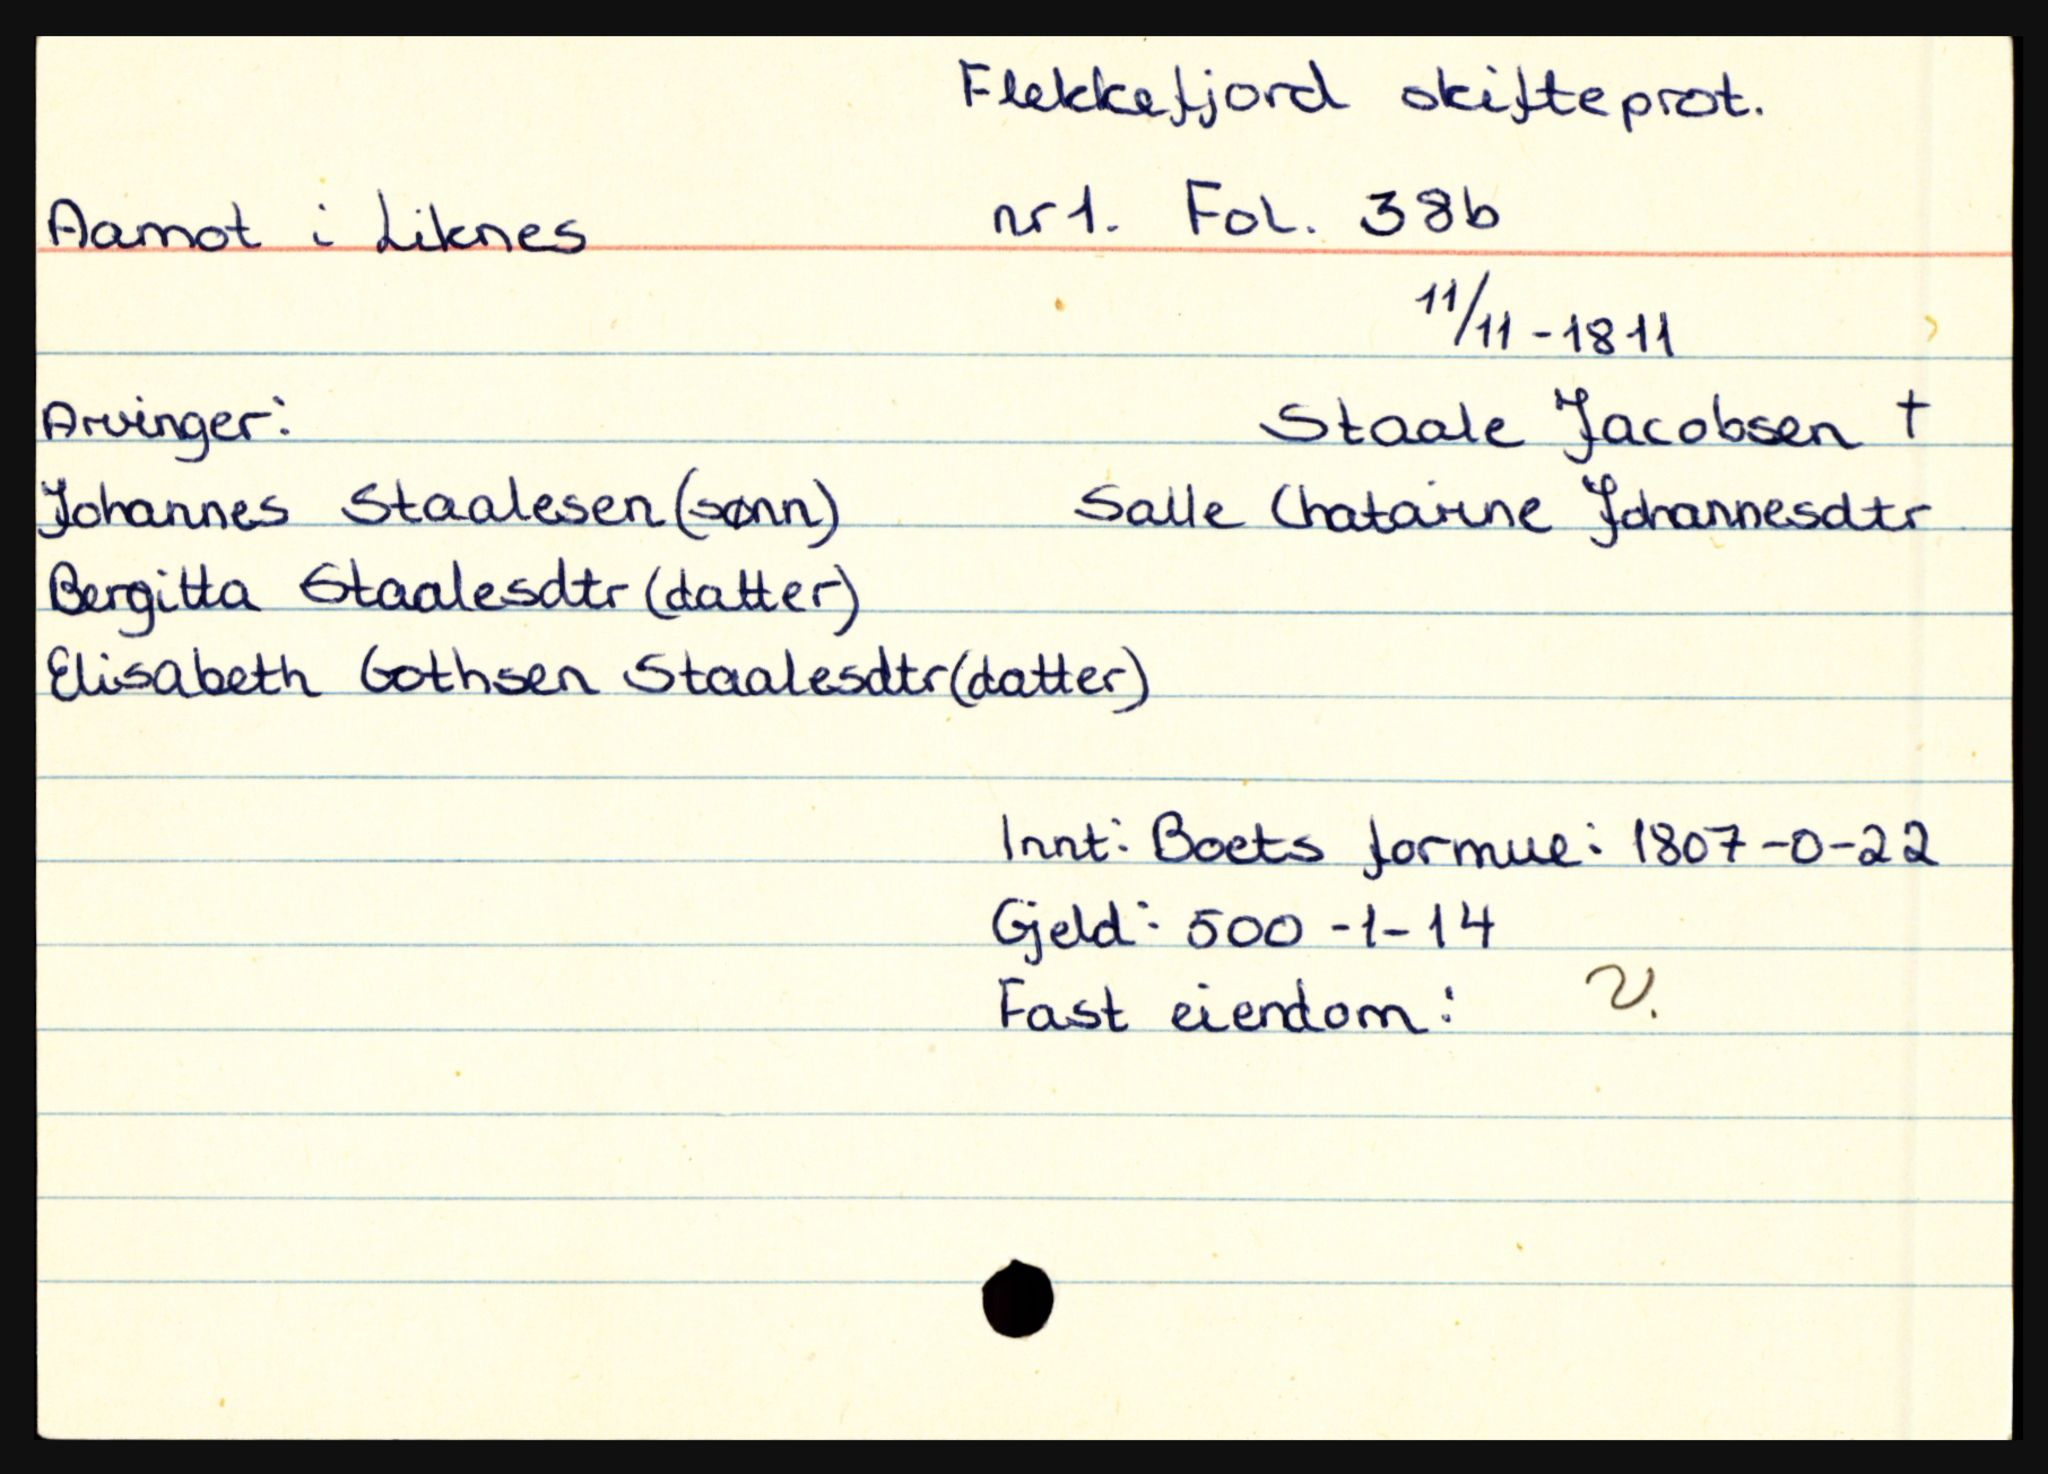 Flekkefjord skifteprot.
Aamot i Liknes nr 1. Fol. 38b
11/11 - 1811
Arvinger: Staale Jacobsen †
Johannes Staalesen (sønn) Salle Chatarine Johannesdtr
Bergitta Staalesdtr (datter)
Elisabeth Gothsen Staalesdtr (datter)
Innt: Boets formue: 1807-0-22
Gjeld: 500 -1- 14
Fast eiendom: